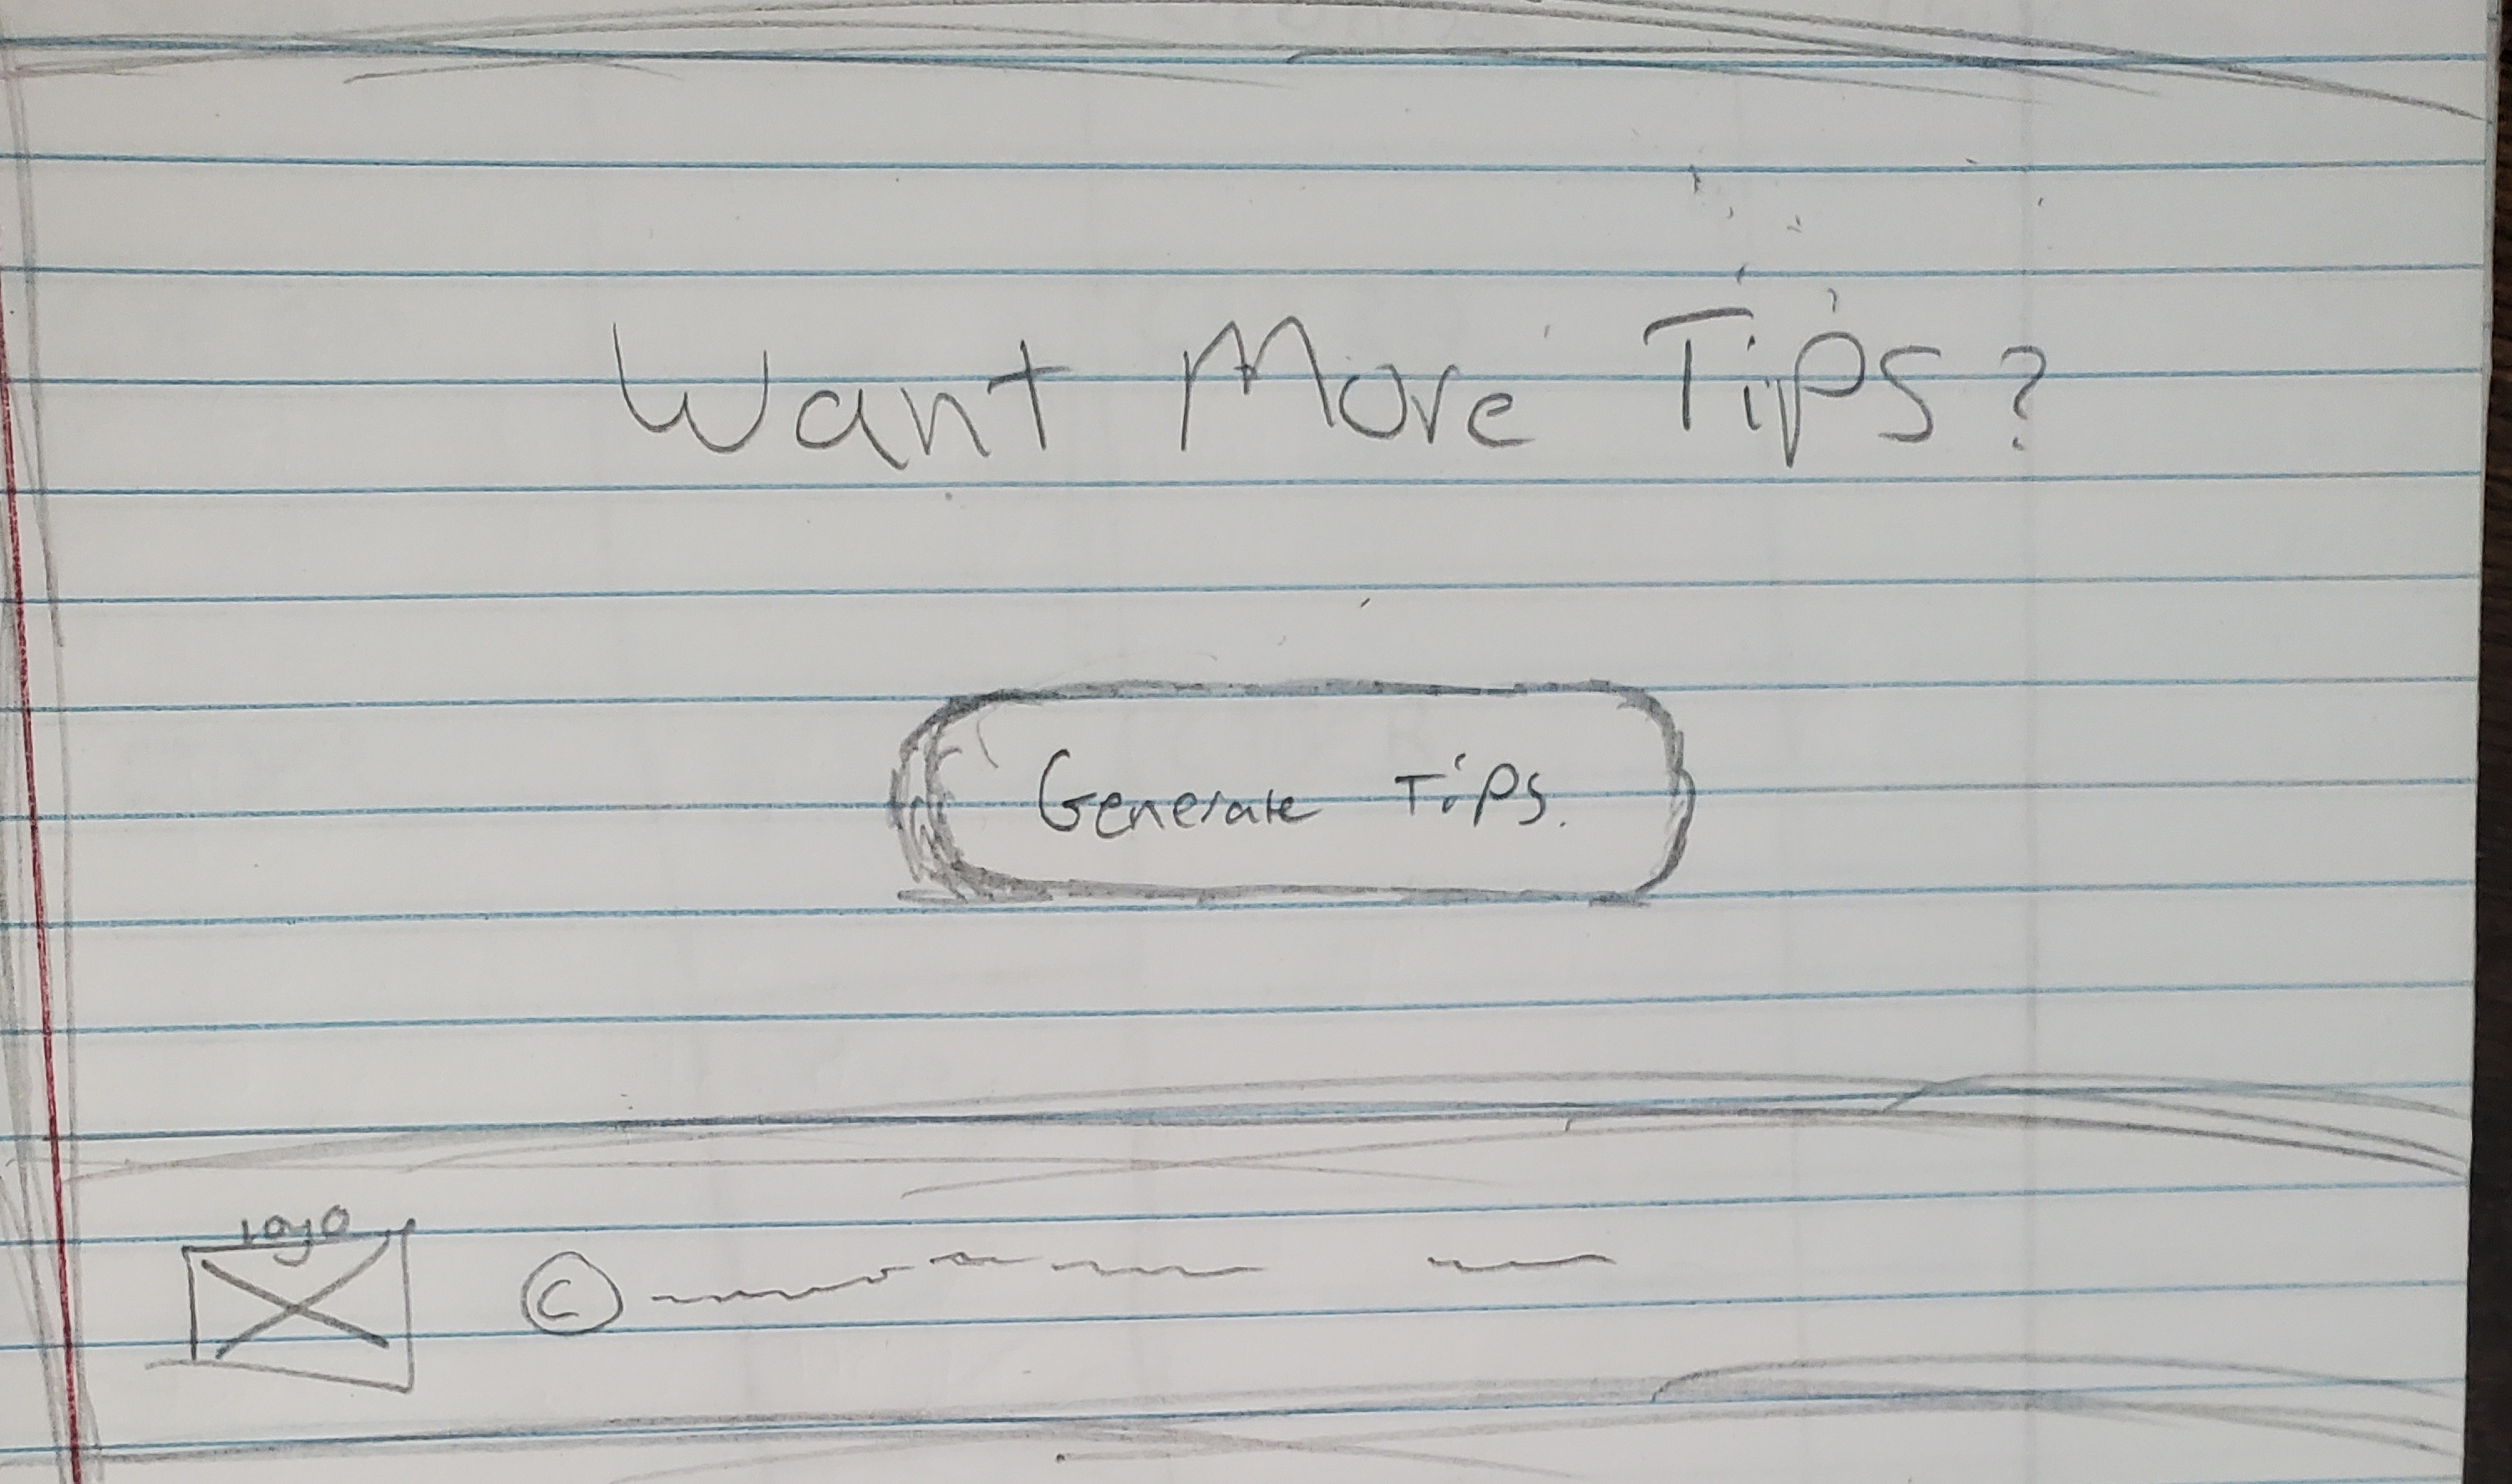 Want More Tips?
Generate Tips.
logo
©